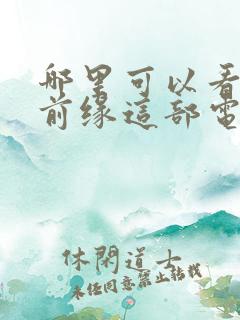 哪里可以看
前缘這部電
休閑道士
未经同意禁止转载